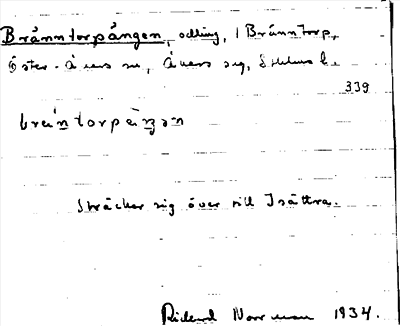 Bränntorpängen, odling, i Bränntorp,
Öster-Åkers sn, Åkers sg, Sthlms l.
339
bräintorpäŋən
Sträcker sig över till Isättra.
Rickard Norrman 1934.